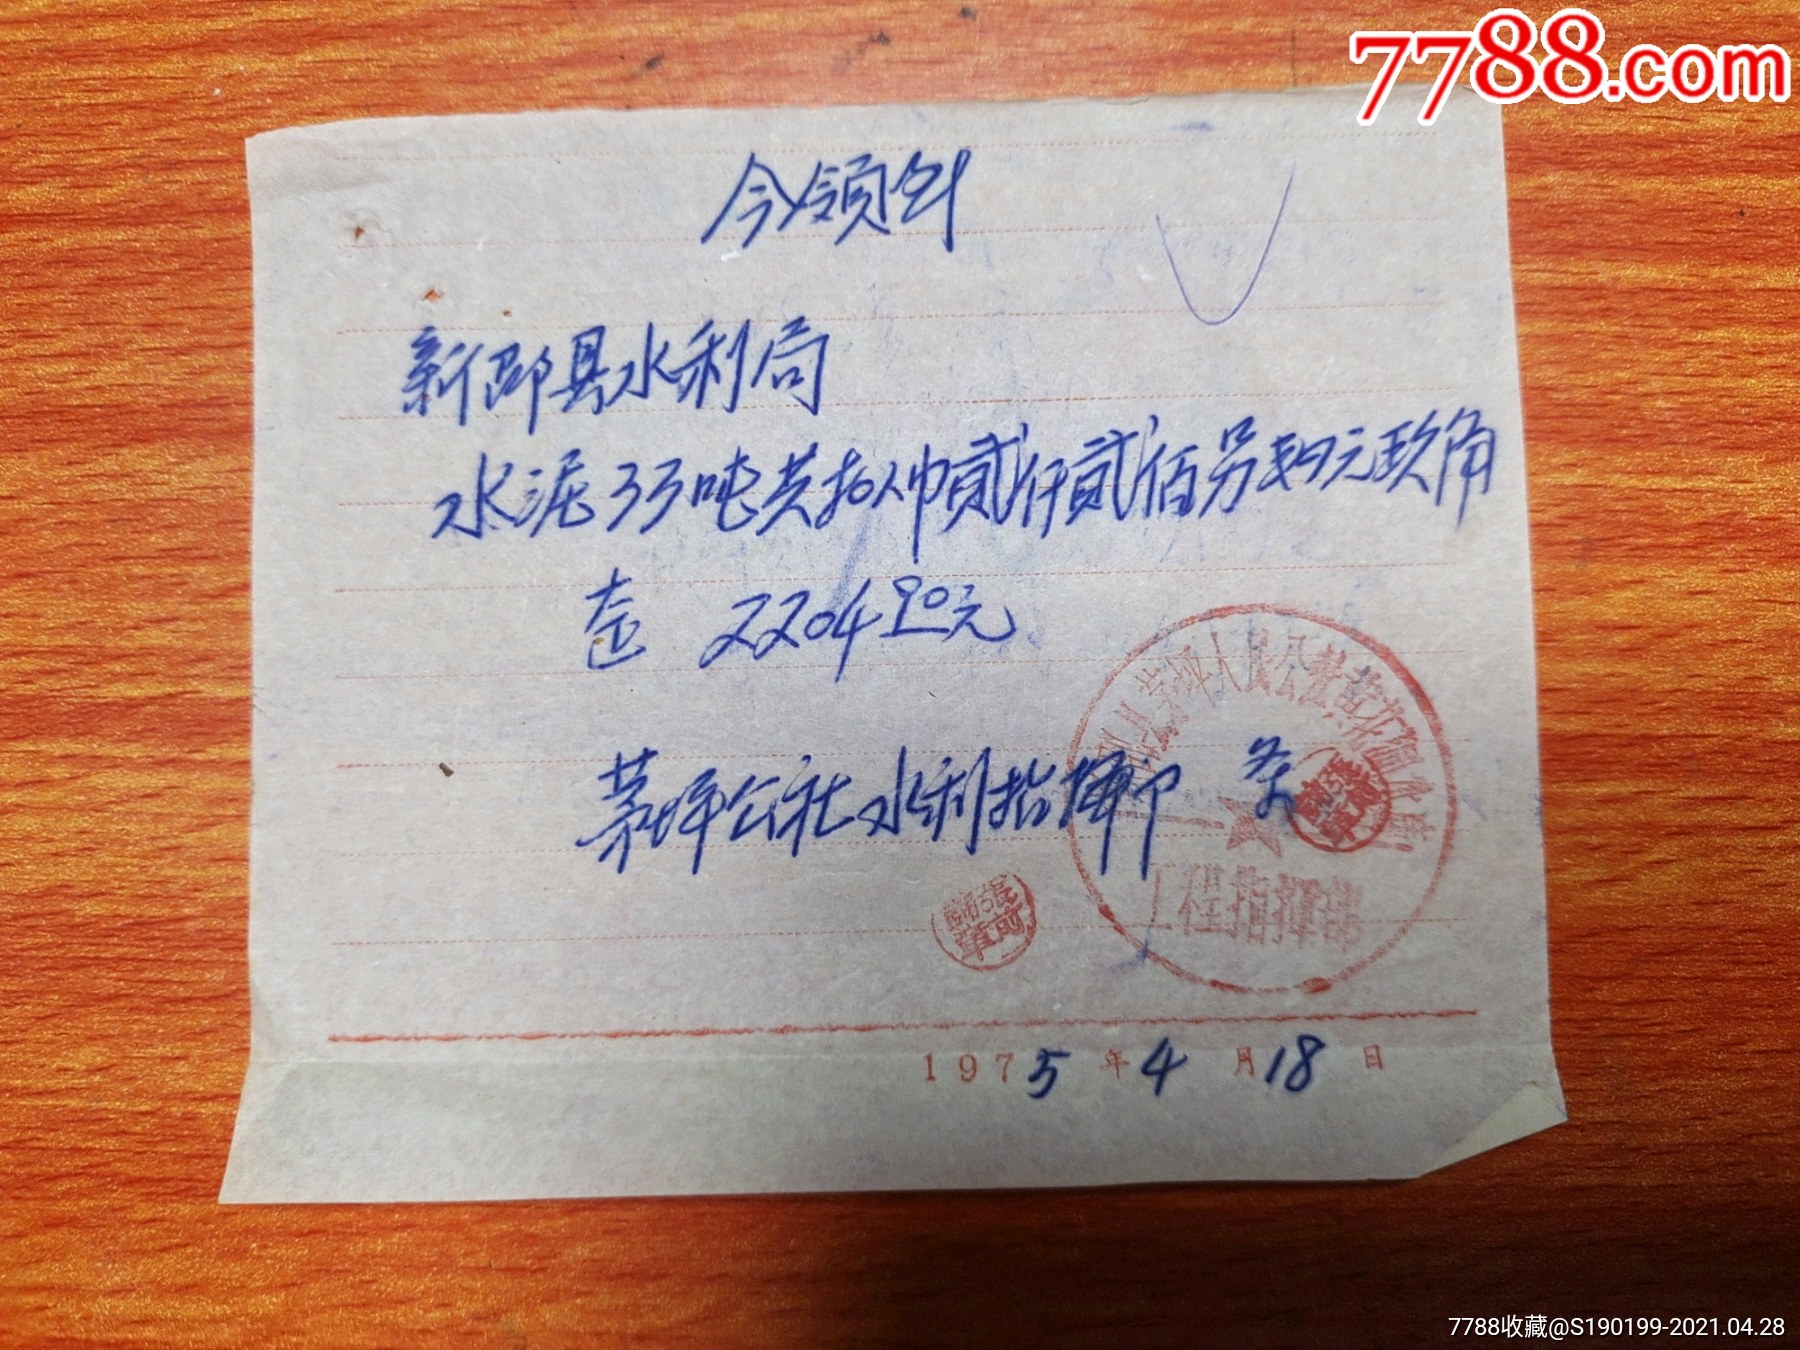 7788.com
今领到
新邵县水利局
水泥33吨共扣人币贰仟贰佰另肆元玖角
赱 2204.90元
茅坪公社水利指挥部 条
茅坪人民公社
工程指挥部
1975年4月18日
7788收藏@S190199-2021.04.28